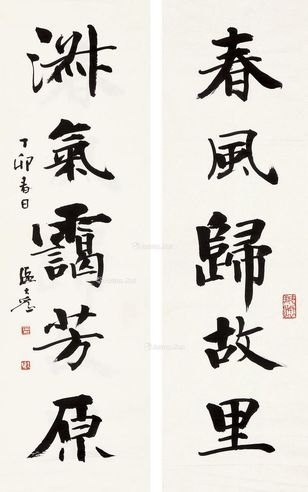 春風歸故里
淑氣靄芳原
丁卯春日